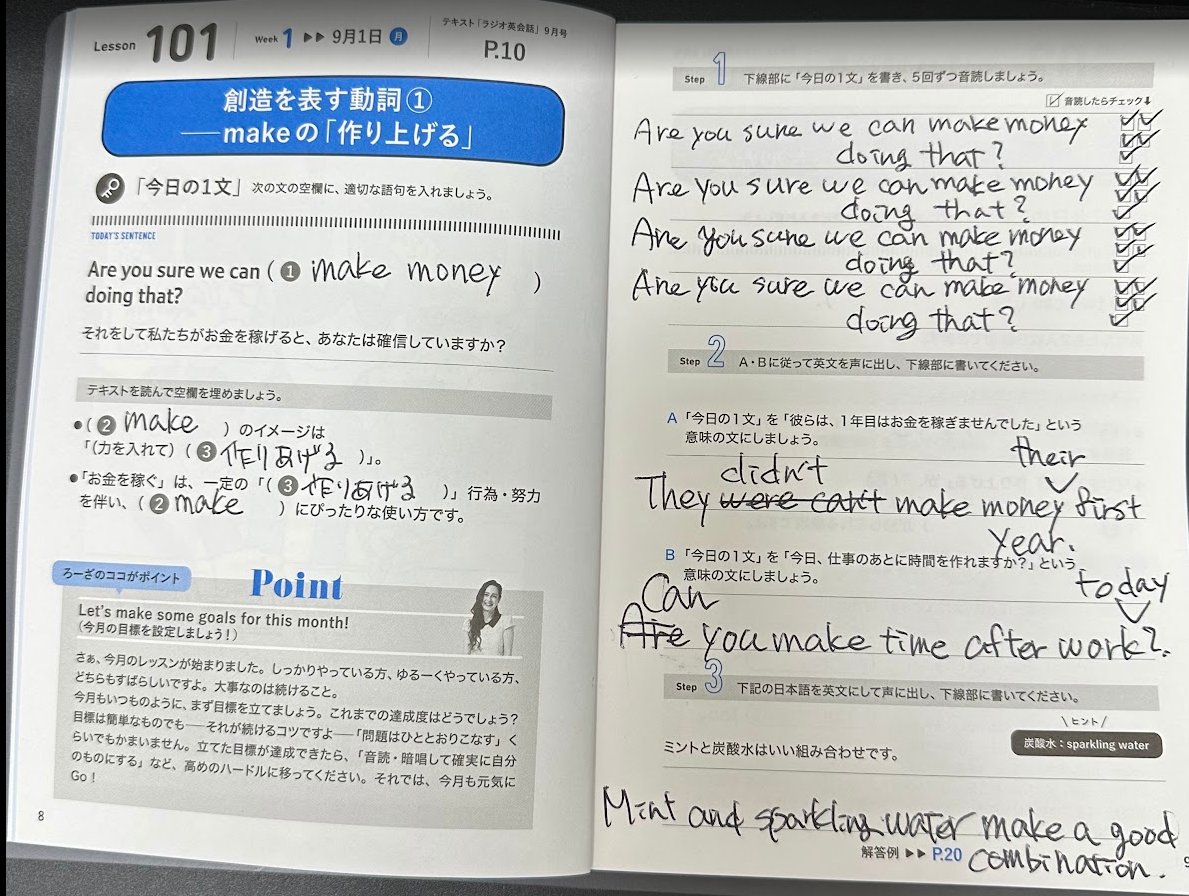 Lesson 101 Week 1 ▶▶ 9月1日 月 テキスト「ラジオ英会話」9月号
P.10
創造を表す動詞①
——makeの「作り上げる」
「今日の1文」 次の文の空欄に、適切な語句を入れましょう。
TODAY'S SENTENCE
Are you sure we can ( ❶ make money )
doing that?
それをして私たちがお金を稼げると、あなたは確信していますか?
テキストを読んで空欄を埋めましょう。
●( ❷ make ) のイメージは
「(力を入れて) ( ❸ 作りあげる )」。
●「お金を稼ぐ」は、一定の「( ❸ 作りあげる )」行為・努力
を伴い、( ❷ make ) にぴったりな使い方です。
ろーざのココがポイント
Point
Let's make some goals for this month!
(今月の目標を設定しましょう!)
さぁ、今月のレッスンが始まりました。しっかりやっている方、ゆるーくやっている方、
どちらもすばらしいですよ。大事なのは続けること。
今月もいつものように、まず目標を立てましょう。これまでの達成度はどうでしょう?
目標は簡単なものでも——それが続けるコツですよ——「問題はひととおりこなす」く
らいでもかまいません。立てた目標が達成できたら、「音読・暗唱して確実に自分
のものにする」など、高めのハードルに移ってください。それでは、今月も元気に
Go!
8
Step 1 下線部に「今日の1文」を書き、5回ずつ音読しましょう。
音読したらチェック↓
Are you sure we can make money
doing that?
Are you sure we can make money
doing that?
Are you sure we can make money
doing that?
Are you sure we can make money
doing that?
Step 2 A・Bに従って英文を声に出し、下線部に書いてください。
A 「今日の1文」を「彼らは、1年目はお金を稼ぎませんでした」という
意味の文にしましょう。
didn't their
They were can't make money first
year.
B 「今日の1文」を「今日、仕事のあとに時間を作れますか?」という
意味の文にしましょう。
Can today
Are you make time after work?
Step 3 下記の日本語を英文にして声に出し、下線部に書いてください。
\ ヒント /
ミントと炭酸水はいい組み合わせです。
炭酸水:sparkling water
Mint and sparkling water make a good
combination.
解答例 ▶▶ P.20
9